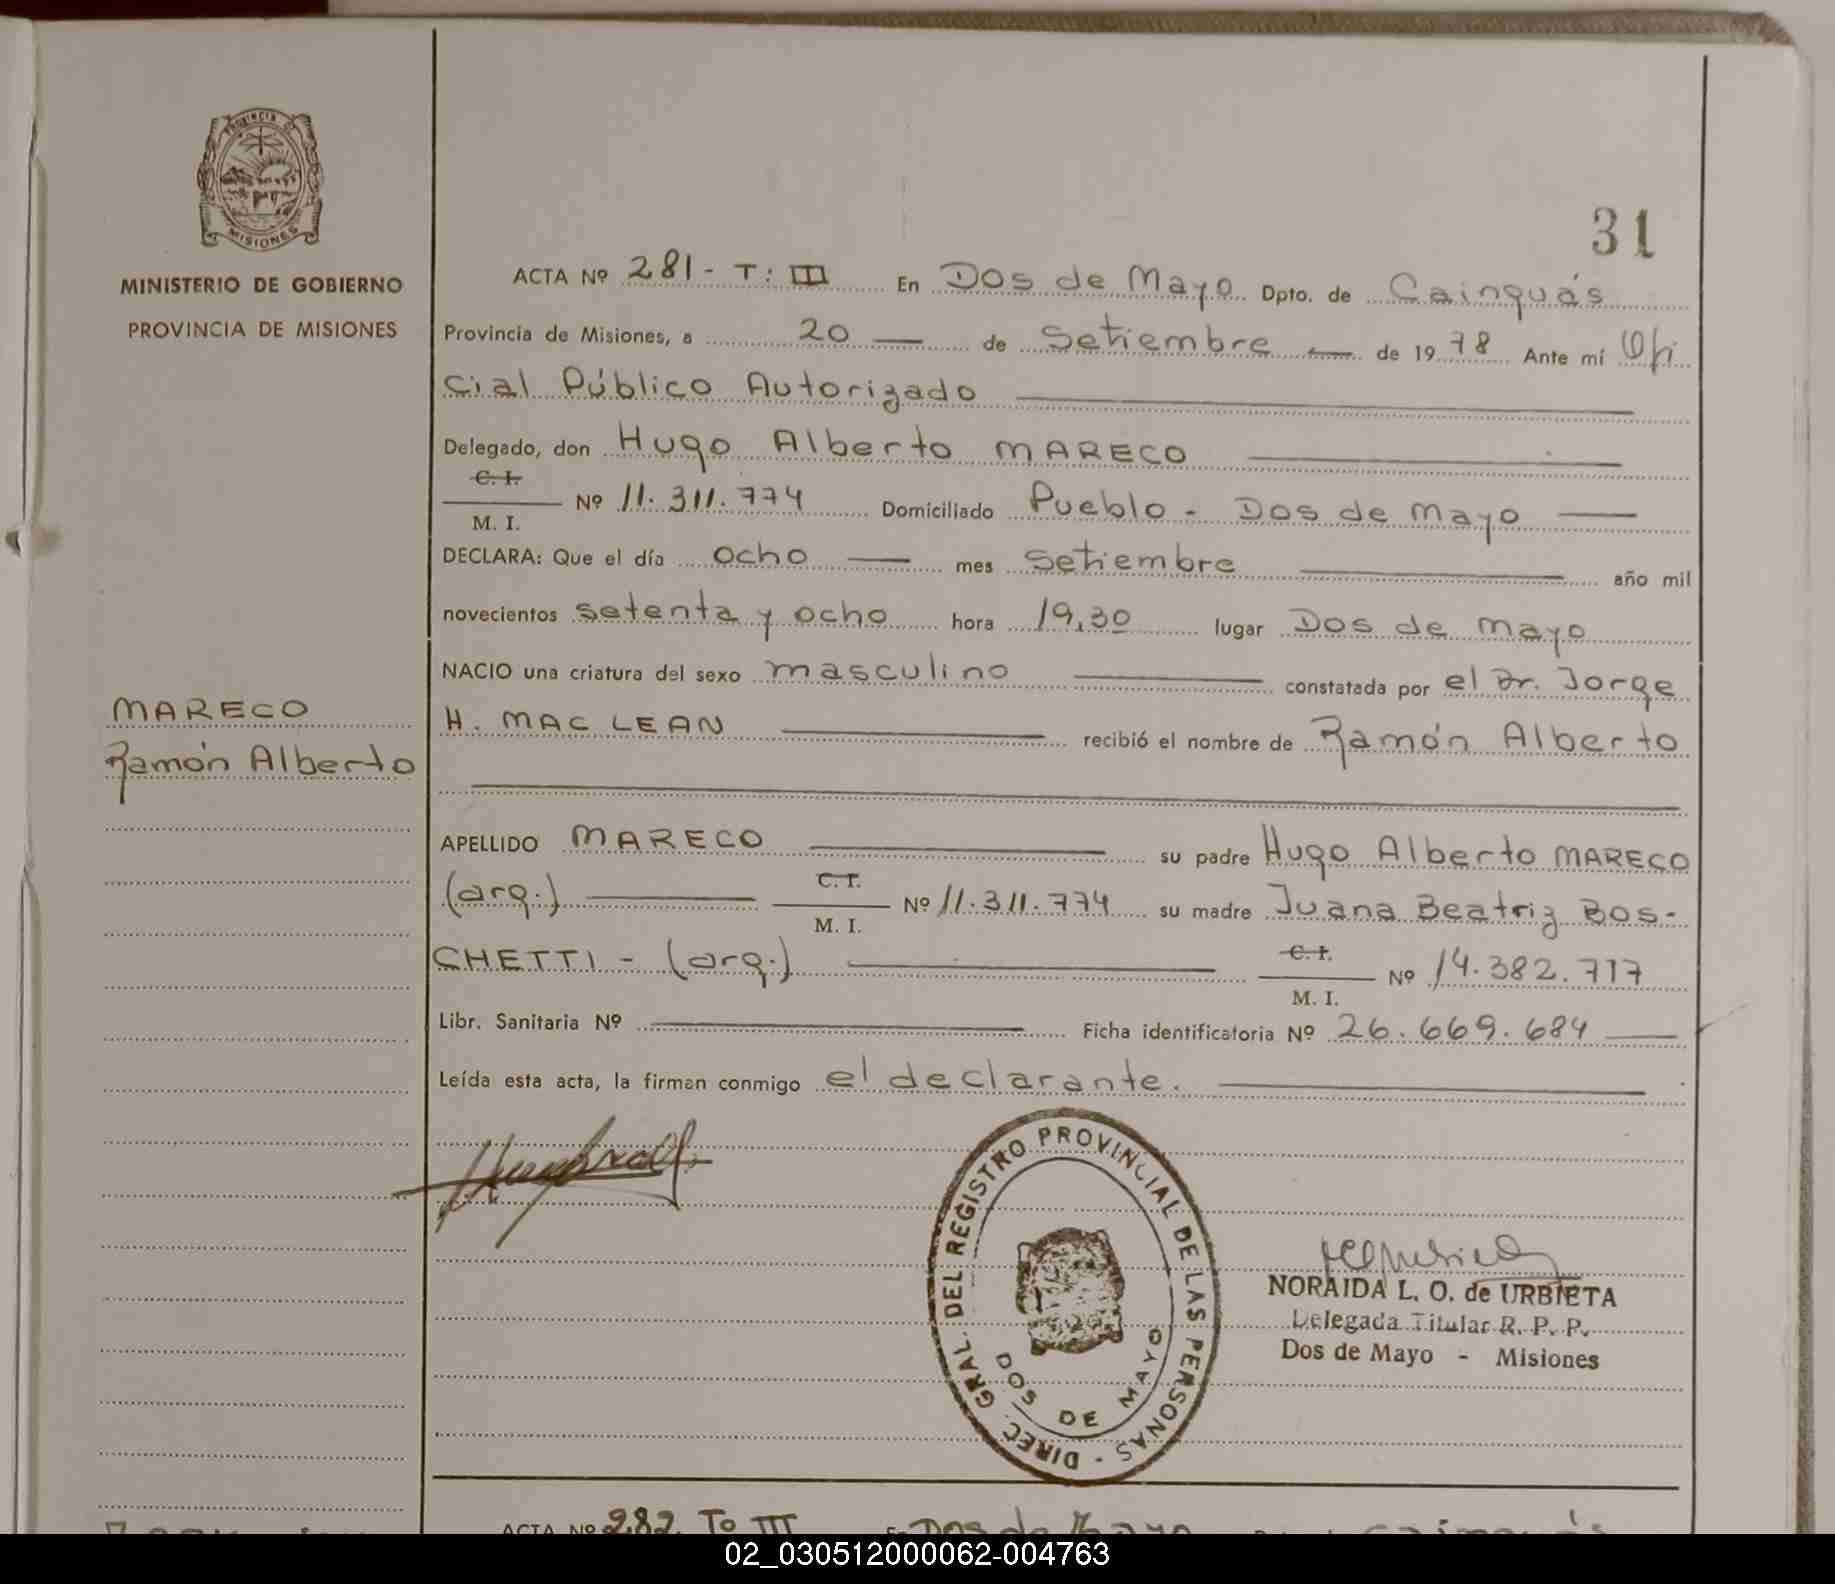 PROVINCIA DE
MISIONES
MINISTERIO DE GOBIERNO
PROVINCIA DE MISIONES
MARECO
Ramón Alberto
31
ACTA Nº 281 - T: III En Dos de Mayo Dpto. de Cainguás
Provincia de Misiones, a 20 — de Setiembre — de 19 78 Ante mí Ofi
cial Público Autorizado
Delegado, don Hugo Alberto MARECO
C. I.
M. I. Nº 11.311.774 Domiciliado Pueblo - Dos de Mayo —
DECLARA: Que el día ocho — mes setiembre — año mil
novecientos setenta y ocho hora 19,30 lugar Dos de Mayo
NACIO una criatura del sexo masculino — constatada por el Dr. Jorge
H. MAC LEAN — recibió el nombre de Ramón Alberto
APELLIDO MARECO — su padre Hugo Alberto MARECO
(arg.) — C. I. M. I. Nº 11.311.774 su madre Juana Beatriz BOS-
CHETTI - (arg.) — C. I. M. I. Nº 14.382.717
Libr. Sanitaria Nº — Ficha identificatoria Nº 26.669.684 —
Leída esta acta, la firman conmigo el declarante. —
DIREC. GRAL. DEL REGISTRO PROVINCIAL DE LAS PERSONAS -
DOS DE MAYO
NORAIDA L. O. de URBIETA
Delegada Titular R. P. P.
Dos de Mayo - Misiones
ACTA Nº 282 To III En Dos de Mayo Cainguás
02_030512000062-004763